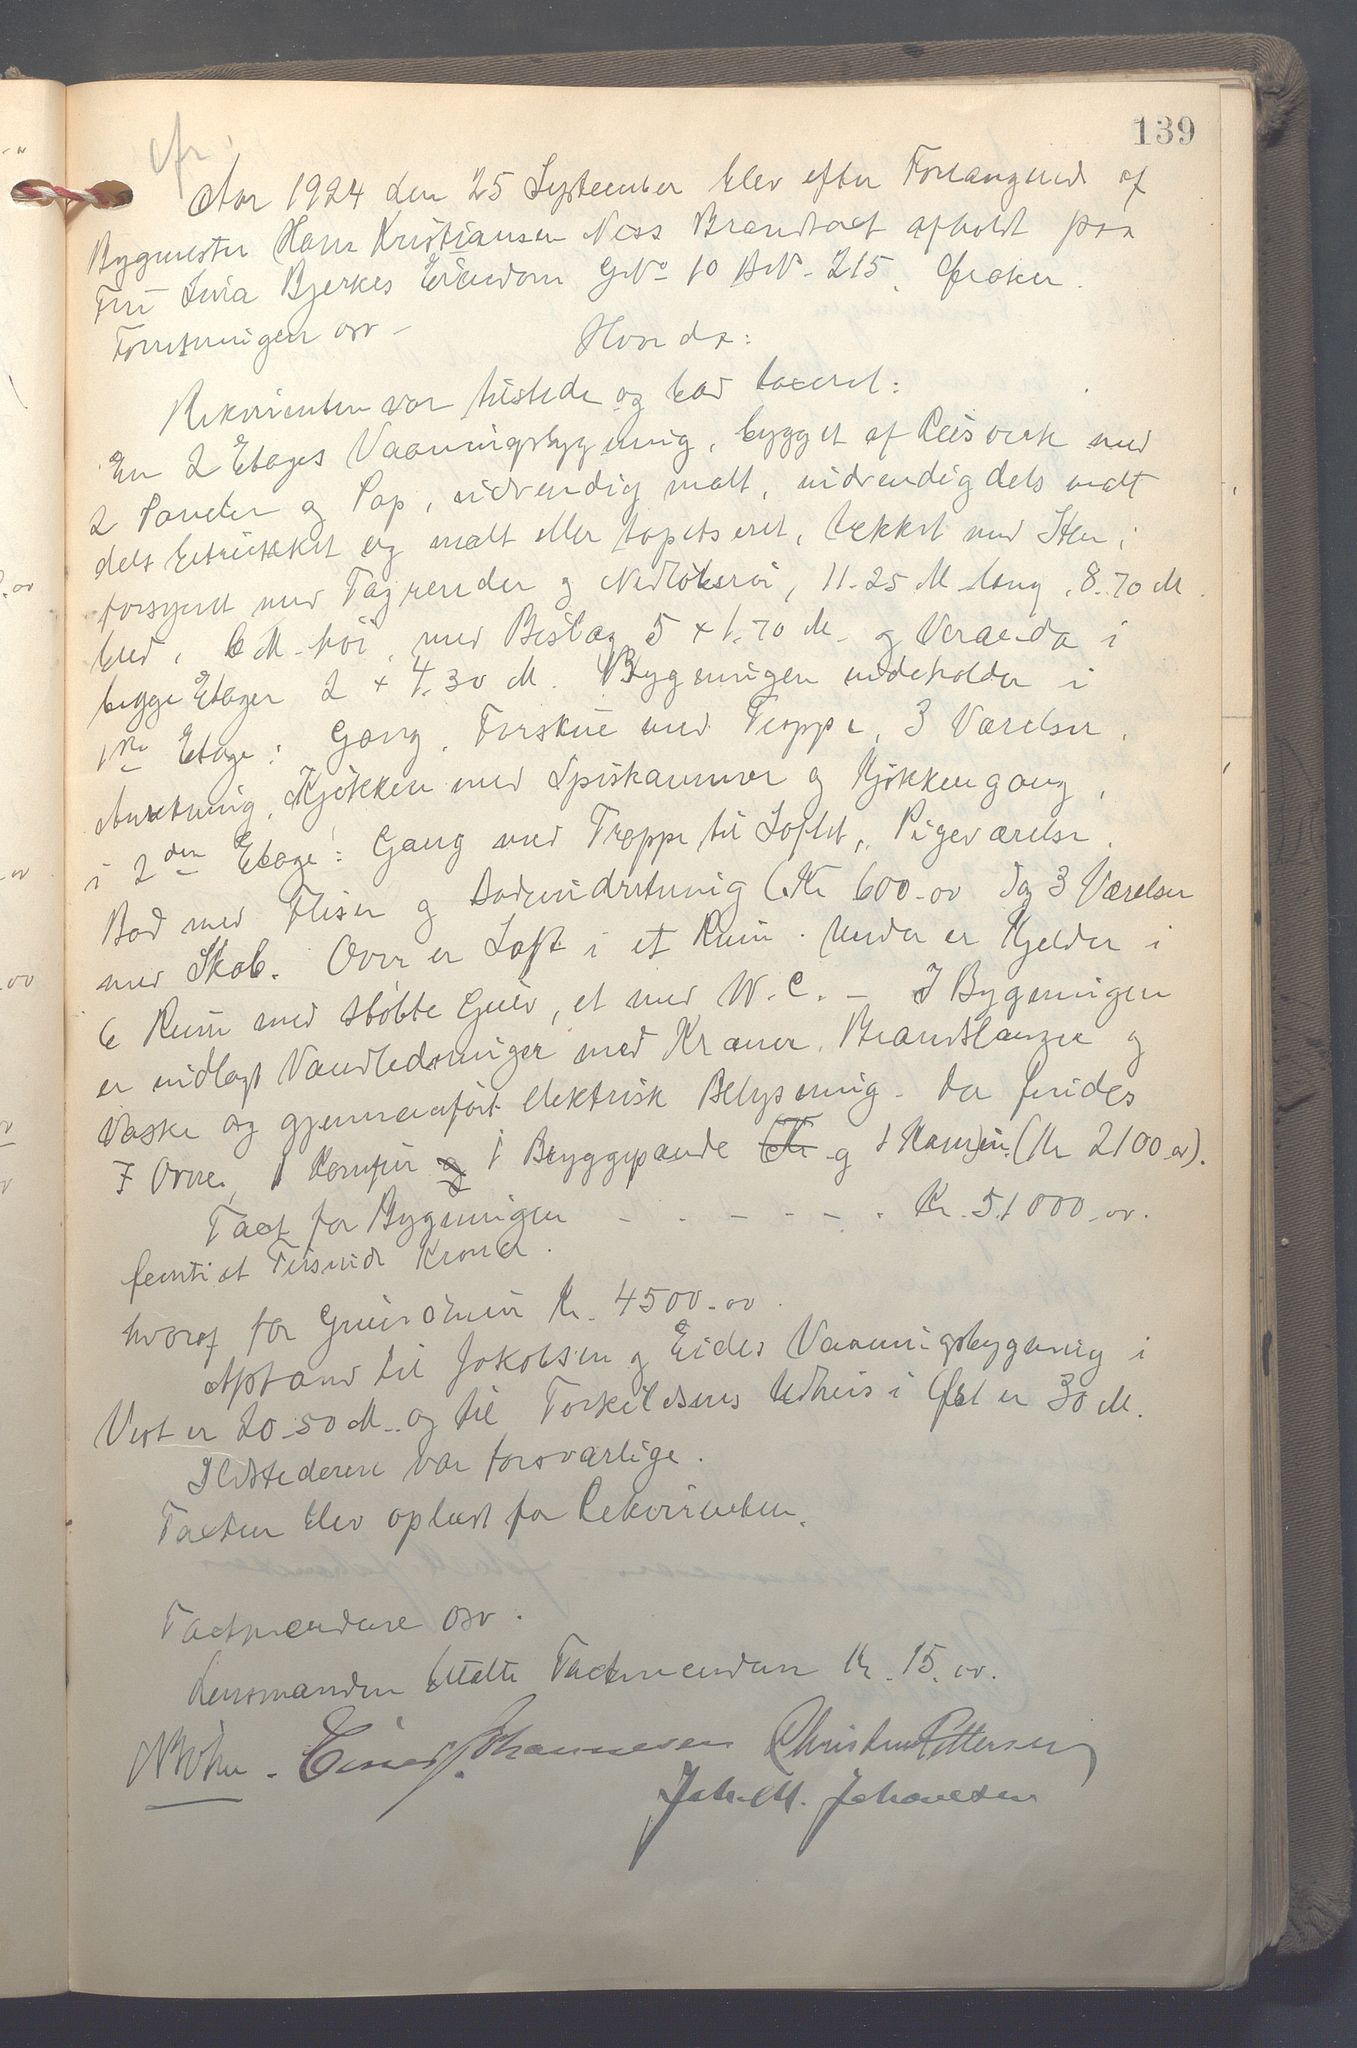 139
cfr.
Aar 1924 den 25 September blev efter Forlangende af
Bygmester Hans Kristiansen Ness Brandtaxt afholdt paa
Fru Bjerkes Eiendom GNo 10 BN. 215. Ønsker
Forretningen osv -
Hvorda:
Rekvirenten var tilstede og bad taxeret:
En 2 Etages Vaaningsbygning, bygget af Reisverk med
2 Paneler og Pap, udvendig malt, indvendig dels malt
dels betrukket og malt eller tapetseret, tækket med Sten,
forsynet med Tagrender og Nedløbsrør, 11.25 M lang, 8.70 M
bred, 6 M høi, med Bislag 5 x 1.70 M og Veranda i
begge Etager 2 x 4.30 M. Bygningen indeholder i
1ste Etage: Gang, Forstue med Trappe, 3 Værelser,
Anretning, Kjøkken med Spiskammer og Kjøkkengang,
i 2den Etage: Gang med Trappe til Loftet, Pigeværelse,
Bad med Fliser og Badeindretning (Kr 600.00 og 3 Værelser
med Skab. Over er Loft i et Rum. Under er Kjelder i
6 Rum med støbte Gulv, et med W.C. - I Bygningen
er indlagt Vandledninger med Kraner, Brandslange og
Vaske og gjennemført elektrisk Belysning. Der findes
7 Ovne, 1 Komfur og 1 Bryggepande (Kr og 1 Kamin (Kr 2100.00).
Taxt for Bygningen - - - - - - Kr. 51000.00.
femti et Tusinde Kroner.
hvoraf for Grundmur Kr. 4500.00.
Afstand til Jakobsen og Eides Vaaningsbygning i
Vest er 20.50 M. og til Torkildsens Udhus i Øst er 30 M.
Ildstederne var forsvarlige.
Taxten blev oplæst for Rekvirenten.
Taxtmændene osv.
Lensmanden betalte Taxtmændene Kr. 15.00.
Einar Johannesen Christian Pettersen
Joh. M. Johannesen